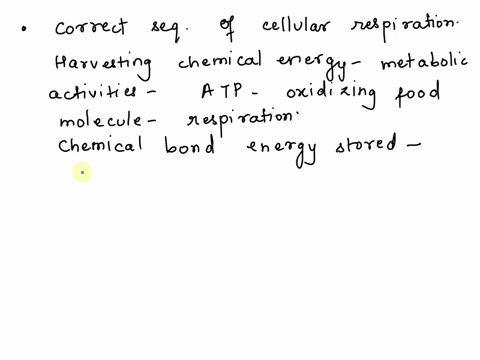 • Correct seq. of cellular respiration.
Harvesting chemical energy - metabolic
activities - ATP - oxidizing food
molecule - respiration.
Chemical bond energy stored -